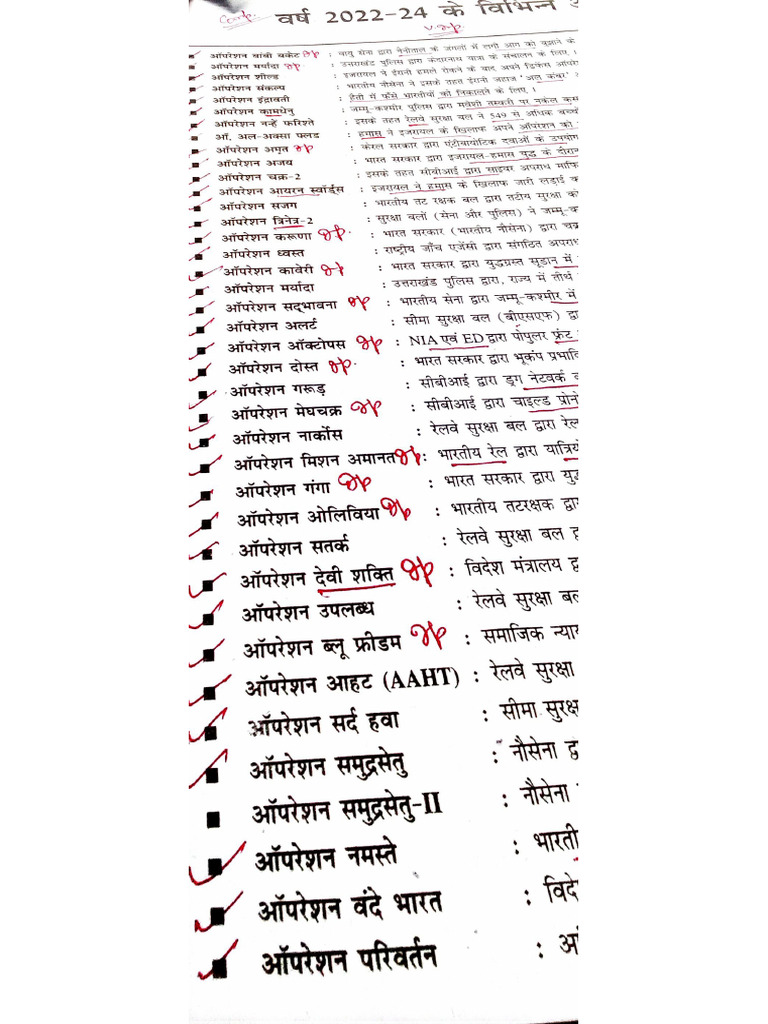 वर्ष 2022-24 के विभिन्न
ऑपरेशन बांबी बकेट : वायु सेना द्वारा नैनीताल के जगलों में लगी आग को बुझाने के
ऑपरेशन मर्यादा : उत्तराखंड पुलिस द्वारा केदारनाथ यात्रा के संचालन के लिए।
ऑपरेशन शील्ड : इजरायल ने ईरानी हमले रोकने के बाद अपने डिफेंस ऑपरे
ऑपरेशन संकल्प : भारतीय नौसेना ने इसके तहत ईरानी जहाज 'अल कंबर'
ऑपरेशन इंद्रावती : हैती में फँसे भारतीयों को निकालने के लिए।
ऑपरेशन कामधेनु : जम्मू-कश्मीर पुलिस द्वारा मवेशी तस्करी पर नकेल कस
ऑपरेशन नन्हे फरिश्ते : इसके तहत रेलवे सुरक्षा बल ने 549 से अधिक बच्चों
ऑ. अल-अक्सा फ्लड : हमास ने इजरायल के खिलाफ अपने ऑपरेशन को
ऑपरेशन अमृत : केरल सरकार द्वारा एंटीबायोटिक दवाओं के उपयोग
ऑपरेशन अजय : भारत सरकार द्वारा इजरायल-हमास युद्ध के दौरान
ऑपरेशन चक्र-2 : इसके तहत सीबीआई द्वारा साइबर अपराध माफि
ऑपरेशन आयरन स्वॉर्ड्स : इजरायल ने हमास के खिलाफ जारी लड़ाई क
ऑपरेशन सजग : भारतीय तट रक्षक बल द्वारा तटीय सुरक्षा को
ऑपरेशन त्रिनेत्र-2 : सुरक्षा बलों (सेना और पुलिस) ने जम्मू-क
ऑपरेशन करूणा : भारत सरकार (भारतीय नौसेना) द्वारा चक्र
ऑपरेशन ध्वस्त : राष्ट्रीय जाँच एजेंसी द्वारा संगठित अपराध
ऑपरेशन कावेरी : भारत सरकार द्वारा युद्धग्रस्त सूडान में
ऑपरेशन मर्यादा : उत्तराखंड पुलिस द्वारा, राज्य में तीर्थ
ऑपरेशन सद्भावना : भारतीय सेना द्वारा जम्मू-कश्मीर में
ऑपरेशन अलर्ट : सीमा सुरक्षा बल (बीएसएफ) द्वा
ऑपरेशन ऑक्टोपस : NIA एवं ED द्वारा पोपुलर फ्रंट
ऑपरेशन दोस्त : भारत सरकार द्वारा भूकंप प्रभावि
ऑपरेशन गरूड़ : सीबीआई द्वारा ड्रग नेटवर्क
ऑपरेशन मेघचक्र : सीबीआई द्वारा चाइल्ड प्रोने
ऑपरेशन नार्कोस : रेलवे सुरक्षा बल द्वारा रेल
ऑपरेशन मिशन अमानत : भारतीय रेल द्वारा यात्रियों
ऑपरेशन गंगा : भारत सरकार द्वारा युद्
ऑपरेशन ओलिविया : भारतीय तटरक्षक द्वा
ऑपरेशन सतर्क : रेलवे सुरक्षा बल द्व
ऑपरेशन देवी शक्ति : विदेश मंत्रालय द्व
ऑपरेशन उपलब्ध : रेलवे सुरक्षा बल
ऑपरेशन ब्लू फ्रीडम : समाजिक न्याय
ऑपरेशन आहट (AAHT) : रेलवे सुरक्षा
ऑपरेशन सर्द हवा : सीमा सुरक्ष
ऑपरेशन समुद्रसेतु : नौसेना द्व
ऑपरेशन समुद्रसेतु-II : नौसेना
ऑपरेशन नमस्ते : भारती
ऑपरेशन वंदे भारत : विदे
ऑपरेशन परिवर्तन :